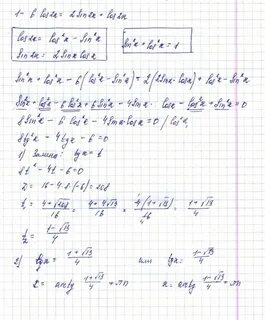 1 - 6 cos2x = 2 sin2x + cos2x
cos2x = cos²x - sin²x
sin2x = 2 sinx cosx
sin²x + cos²x = 1
sin²x + cos²x - 6(cos²x - sin²x) = 2(2sinx·cosx) + cos²x - sin²x
sin²x + cos²x - 6cos²x + 6sin²x - 4sinx · cosx - cos²x + sin²x = 0
8sin²x - 6cos²x - 4sinx cosx = 0 / cos²x
8tg²x - 4tgx - 6 = 0
1) Замена: tgx = t
8t² - 4t - 6 = 0
D = 16 - 4·8·(-6) = 208
t₁ = (4+√208)/16 = (4+4√13)/16 = 4(1+√13)/16 = (1+√13)/4
t₂ = (1-√13)/4
2) tgx = (1+√13)/4 или tgx = (1-√13)/4
x = arctg (1+√13)/4 + πn x = arctg (1-√13)/4 + πn